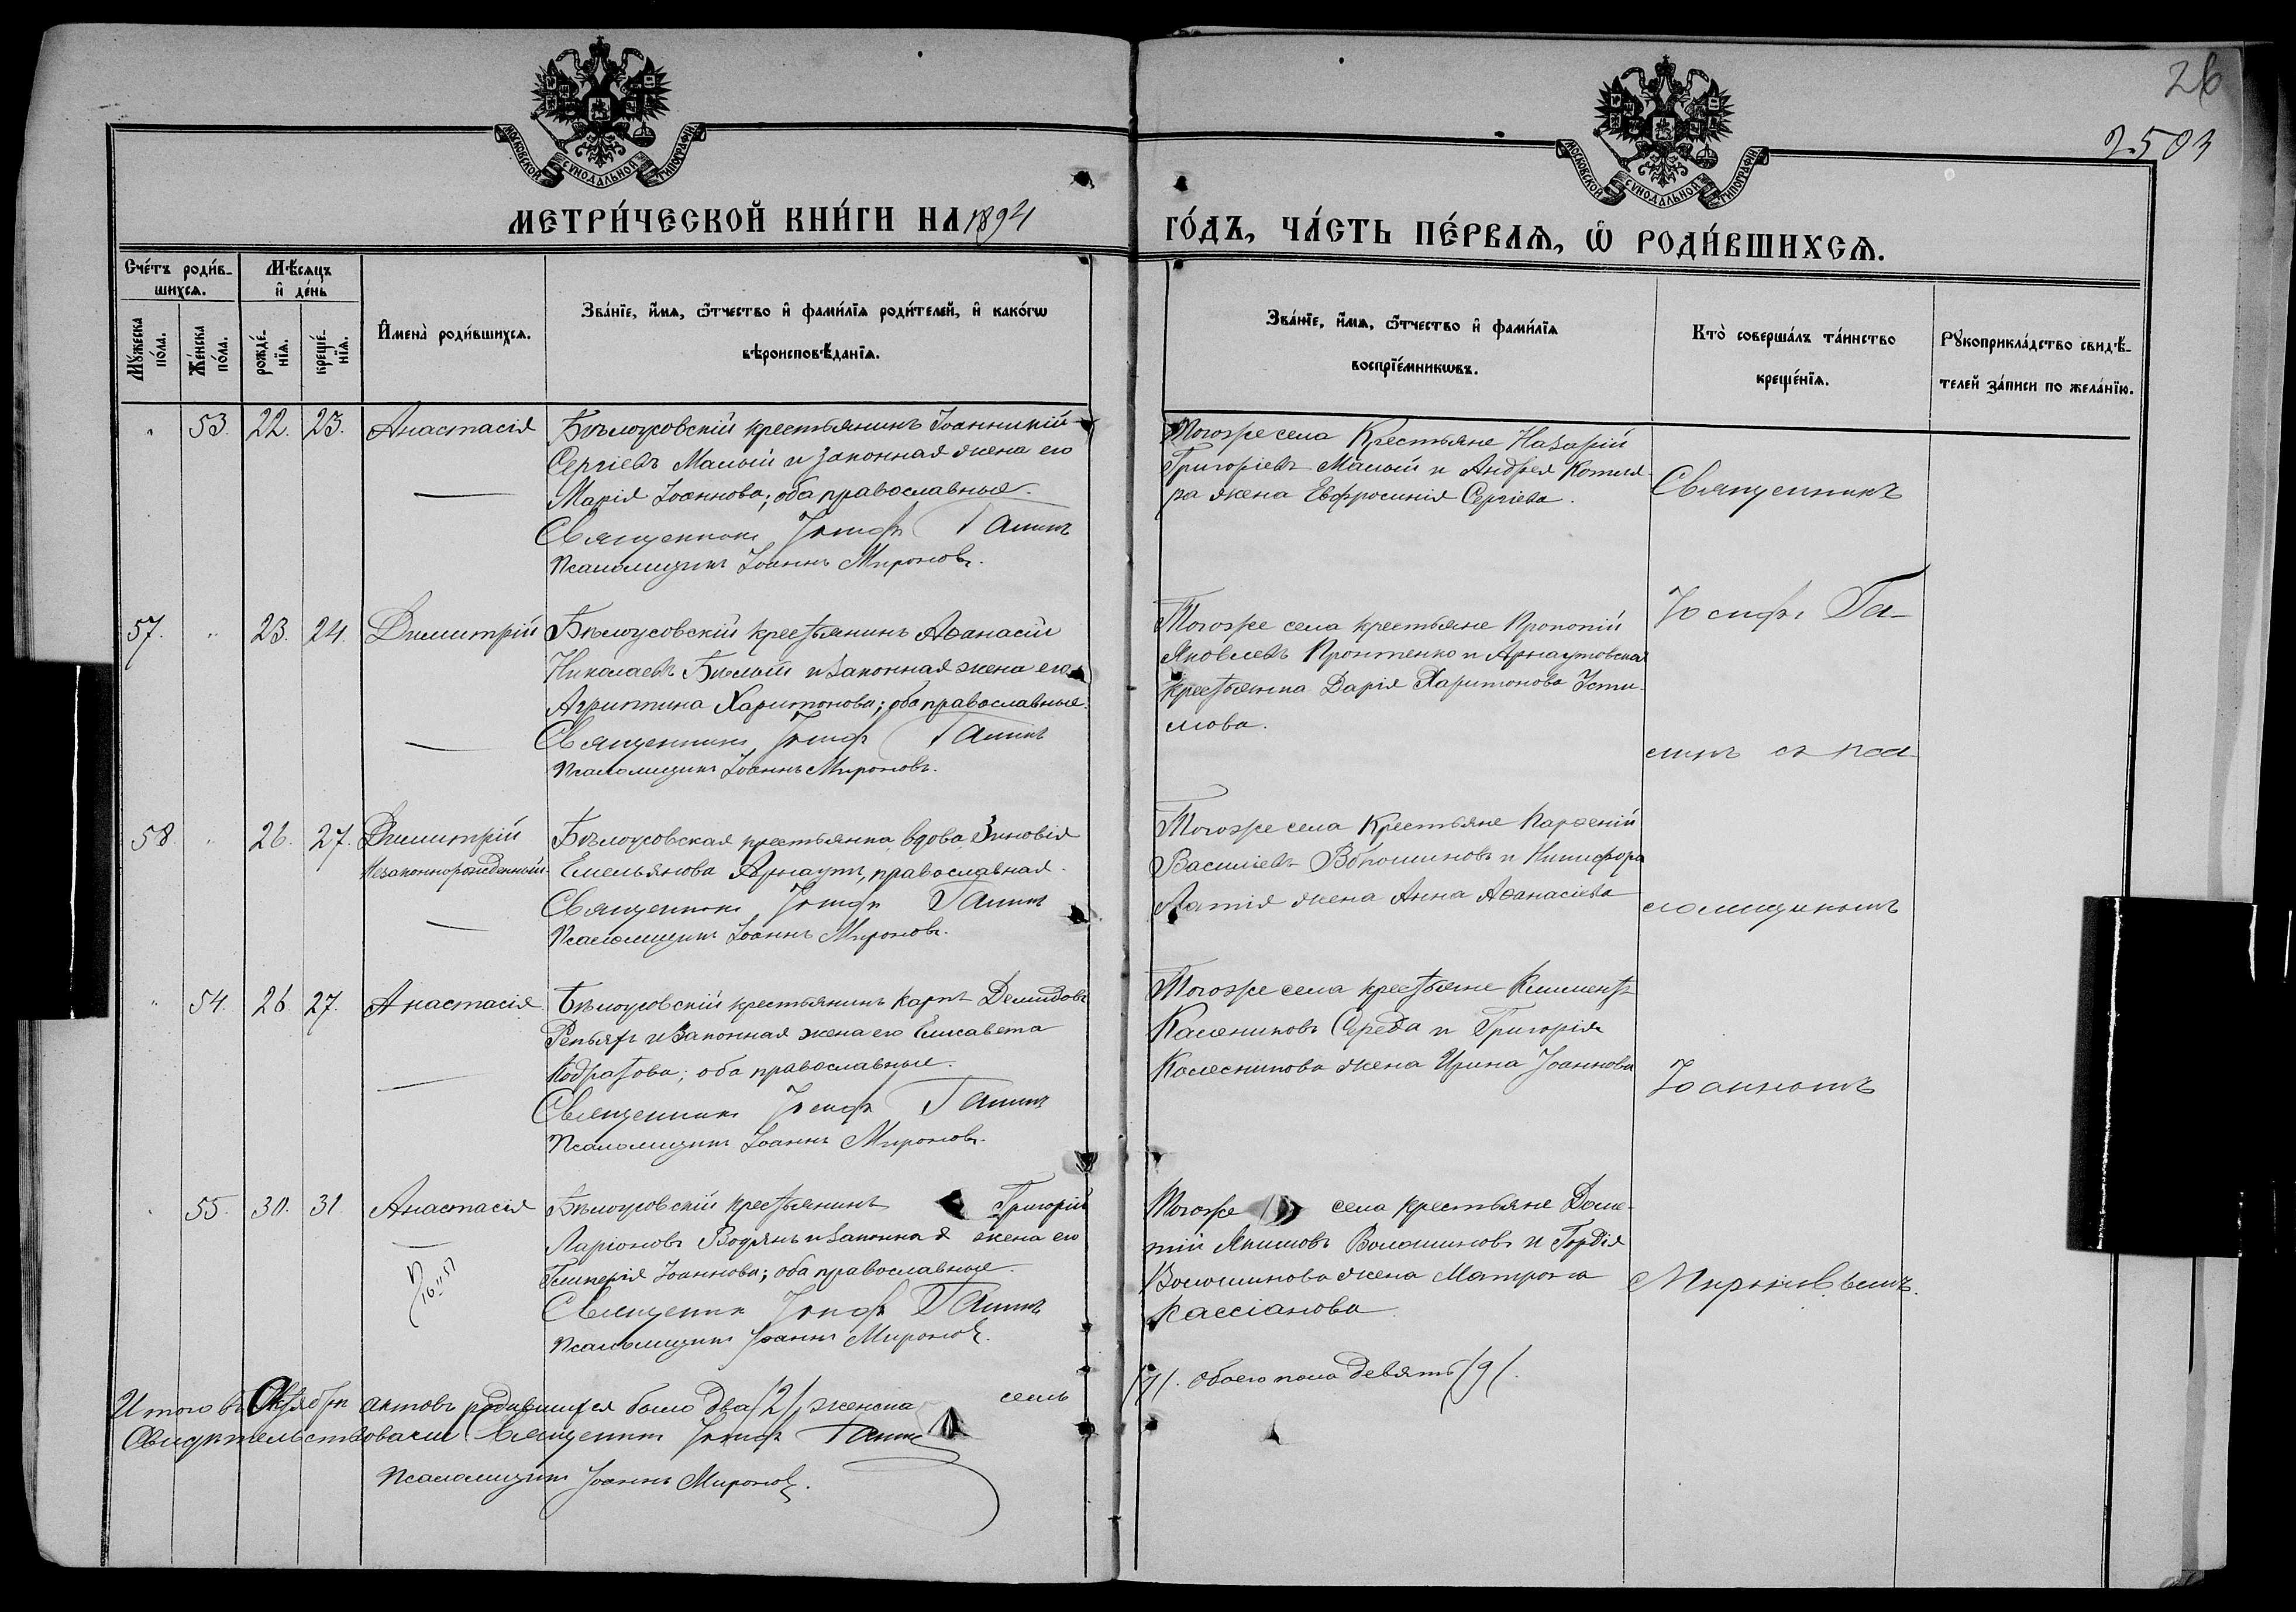 26
2503
МОСКОВСКОЙ СѴНОДАЛЬНОЙ ТИПОГРАФІИ
МОСКОВСКОЙ СѴНОДАЛЬНОЙ ТИПОГРАФІИ
МЕТРИ́ЧЕСКОЙ КНИ́ГИ НА 1894
ГО́ДЪ, ЧА́СТЬ ПЕ́РВАѦ, Ѡ҆ РОДИ́ВШИХСѦ.
Сче́тъ роди́в-
шихсѧ.
Мѣ́сѧцъ
и҆ де́нь
Мꙋ́жеска
по́ла.
Же́нска
по́ла.
рожде́-
нїѧ.
креще́-
нїѧ.
И҆мена̀ роди́вшихсѧ.
Зва́нїе, и҆́мѧ, ѻ҆́тчество и҆ фами́лїѧ роди́телей, и҆ како́гѡ
вѣроисповѣ́данїѧ.
Зва́нїе, и҆́мѧ, ѻ҆́тчество и҆ фами́лїѧ
воспрїе́мникѡвъ.
Кто̀ соверша́лъ та́инство
креще́нїѧ.
Рꙋкоприкла́дство свидѣ́-
телей за́писи по жела́нїю.
" 53. 22. 23. Анастасія Бѣлоусовскій крестьянинъ Іоанникій
Сергіевъ Малый и законная жена его
Марія Іоаннова; оба православные.
Священникъ Іосифъ Галинъ
Псаломщикъ Іоаннъ Мироновъ.
Тогоже села Крестьяне Назарій
Григоріевъ Малый и Андрея Котля-
ра жена Евфросинія Сергіева.
Священникъ
57. " 23. 24. Димитрій Бѣлоусовскій крестьянинъ Аѳанасій
Николаевъ Бѣлый и законная жена его
Агриппина Харитонова; оба православные.
Священникъ Іосифъ Галинъ
Псаломщикъ Іоаннъ Мироновъ.
Тогоже села крестьяне Прокопій
Яковлевъ Пронтенко и Арнаутовская
крестьянка Дарія Харитонова Усти-
мова.
Іосифъ Га-
линъ съ пса-
58. " 26. 27. Димитрій Бѣлоусовская крестьянка вдова Зиновія
Незаконнорожденный Емельянова Арнаутъ, православная.
Священникъ Іосифъ Галинъ
Псаломщикъ Іоаннъ Мироновъ.
Тогоже села Крестьяне Парѳеній
Василіевъ Волошиновъ и Никифора
Латія жена Анна Аѳанасіева
ломщикомъ
" 54. 26. 27. Анастасія Бѣлоусовскій крестьянинъ Карпъ Демидовъ
Репьяхъ и законная жена его Елисавета
Кодратова; оба православные.
Священникъ Іосифъ Галинъ
Псаломщикъ Іоаннъ Мироновъ.
Тогоже села крестьяне Климентъ
Калениковъ Середа и Григорія
Колесникова жена Ирина Іоаннова
Іоанномъ
" 55. 30. 31. Анастасія Бѣлоусовскій крестьянинъ Григорій
Ларіоновъ Водянъ и законная жена его
Гликерія Іоаннова; оба православные.
Священникъ Іосифъ Галинъ
Псаломщикъ Іоаннъ Мироновъ.
Тогоже села крестьяне Доме-
тій Якимовъ Волошиновъ и Гордія
Волошинова жена Матрона
Кассіанова
Мироновымъ.
Итого въ Октябрѣ актовъ родившихся было два /2/ женска семь
/7/. обоего пола девять /9/.
Свидѣтельствовали: Священникъ Іосифъ Галинъ
Псаломщикъ Іоаннъ Мироновъ.